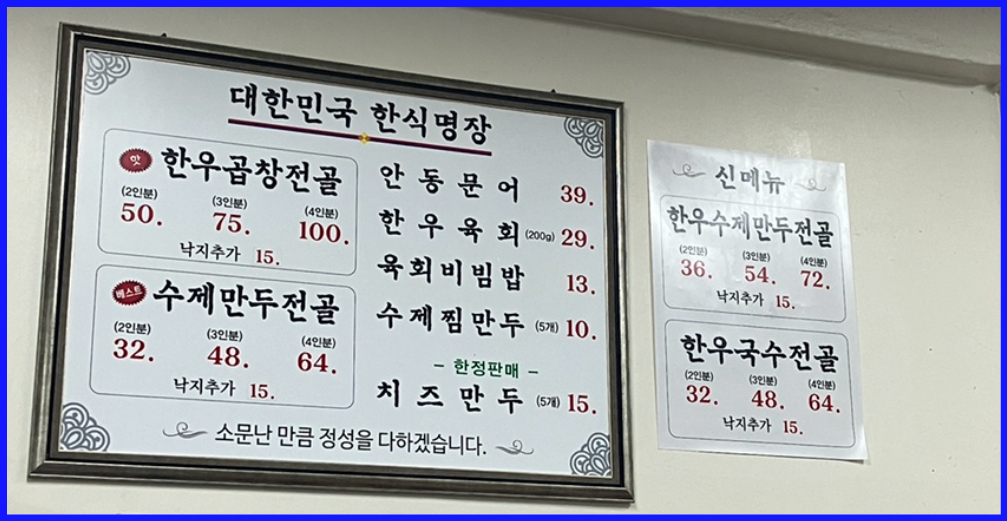 대한민국 한식명장
맛 한우곱창전골
(2인분) (3인분) (4인분)
50. 75. 100.
낙지추가 15.
베스트 수제만두전골
(2인분) (3인분) (4인분)
32. 48. 64.
낙지추가 15.
안동문어 39.
한우육회 (200g) 29.
육회비빔밥 13.
수제찜만두 (5개) 10.
- 한정판매 -
치즈만두 (5개) 15.
소문난 만큼 정성을 다하겠습니다.
신메뉴
한우수제만두전골
(2인분) (3인분) (4인분)
36. 54. 72.
낙지추가 15.
한우국수전골
(2인분) (3인분) (4인분)
32. 48. 64.
낙지추가 15.